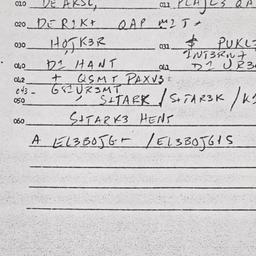 010 DE AKSL, 011 PLAJLS QA
020 DER1K+ QAP M2T.
030 HOJK3R 031 $ PUKL
INT3RNA
040 D1 HANT 041 D1 UR3
042 + QSMT PAXVS
043- GS1UR3MT
050 S+TARK / S+TAR3K / K1
060 S+TARK3 HENT
A EL3BOJG+ / EL3BOJG1S